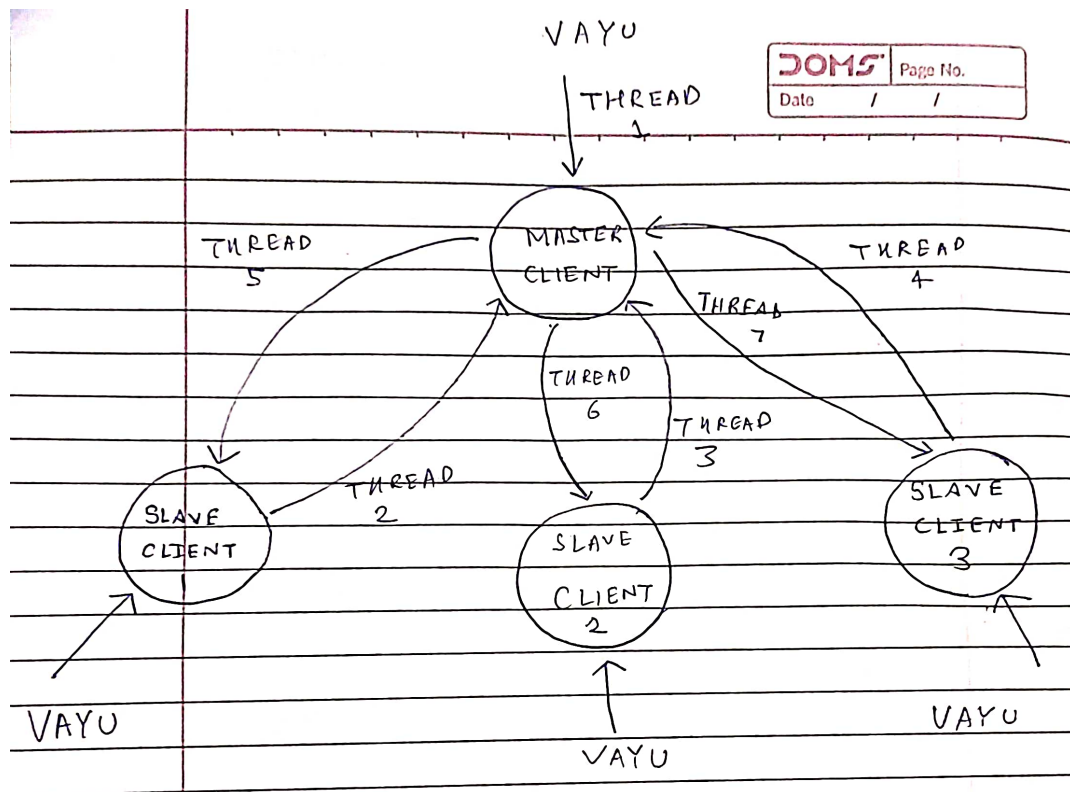 VAYU
DOMS
Page No.
Date / /
THREAD
1
MASTER
CLIENT
THREAD
5
THREAD
4
THREAD
7
THREAD
6
THREAD
3
THREAD
2
SLAVE
CLIENT
1
SLAVE
CLIENT
2
SLAVE
CLIENT
3
VAYU
VAYU
VAYU